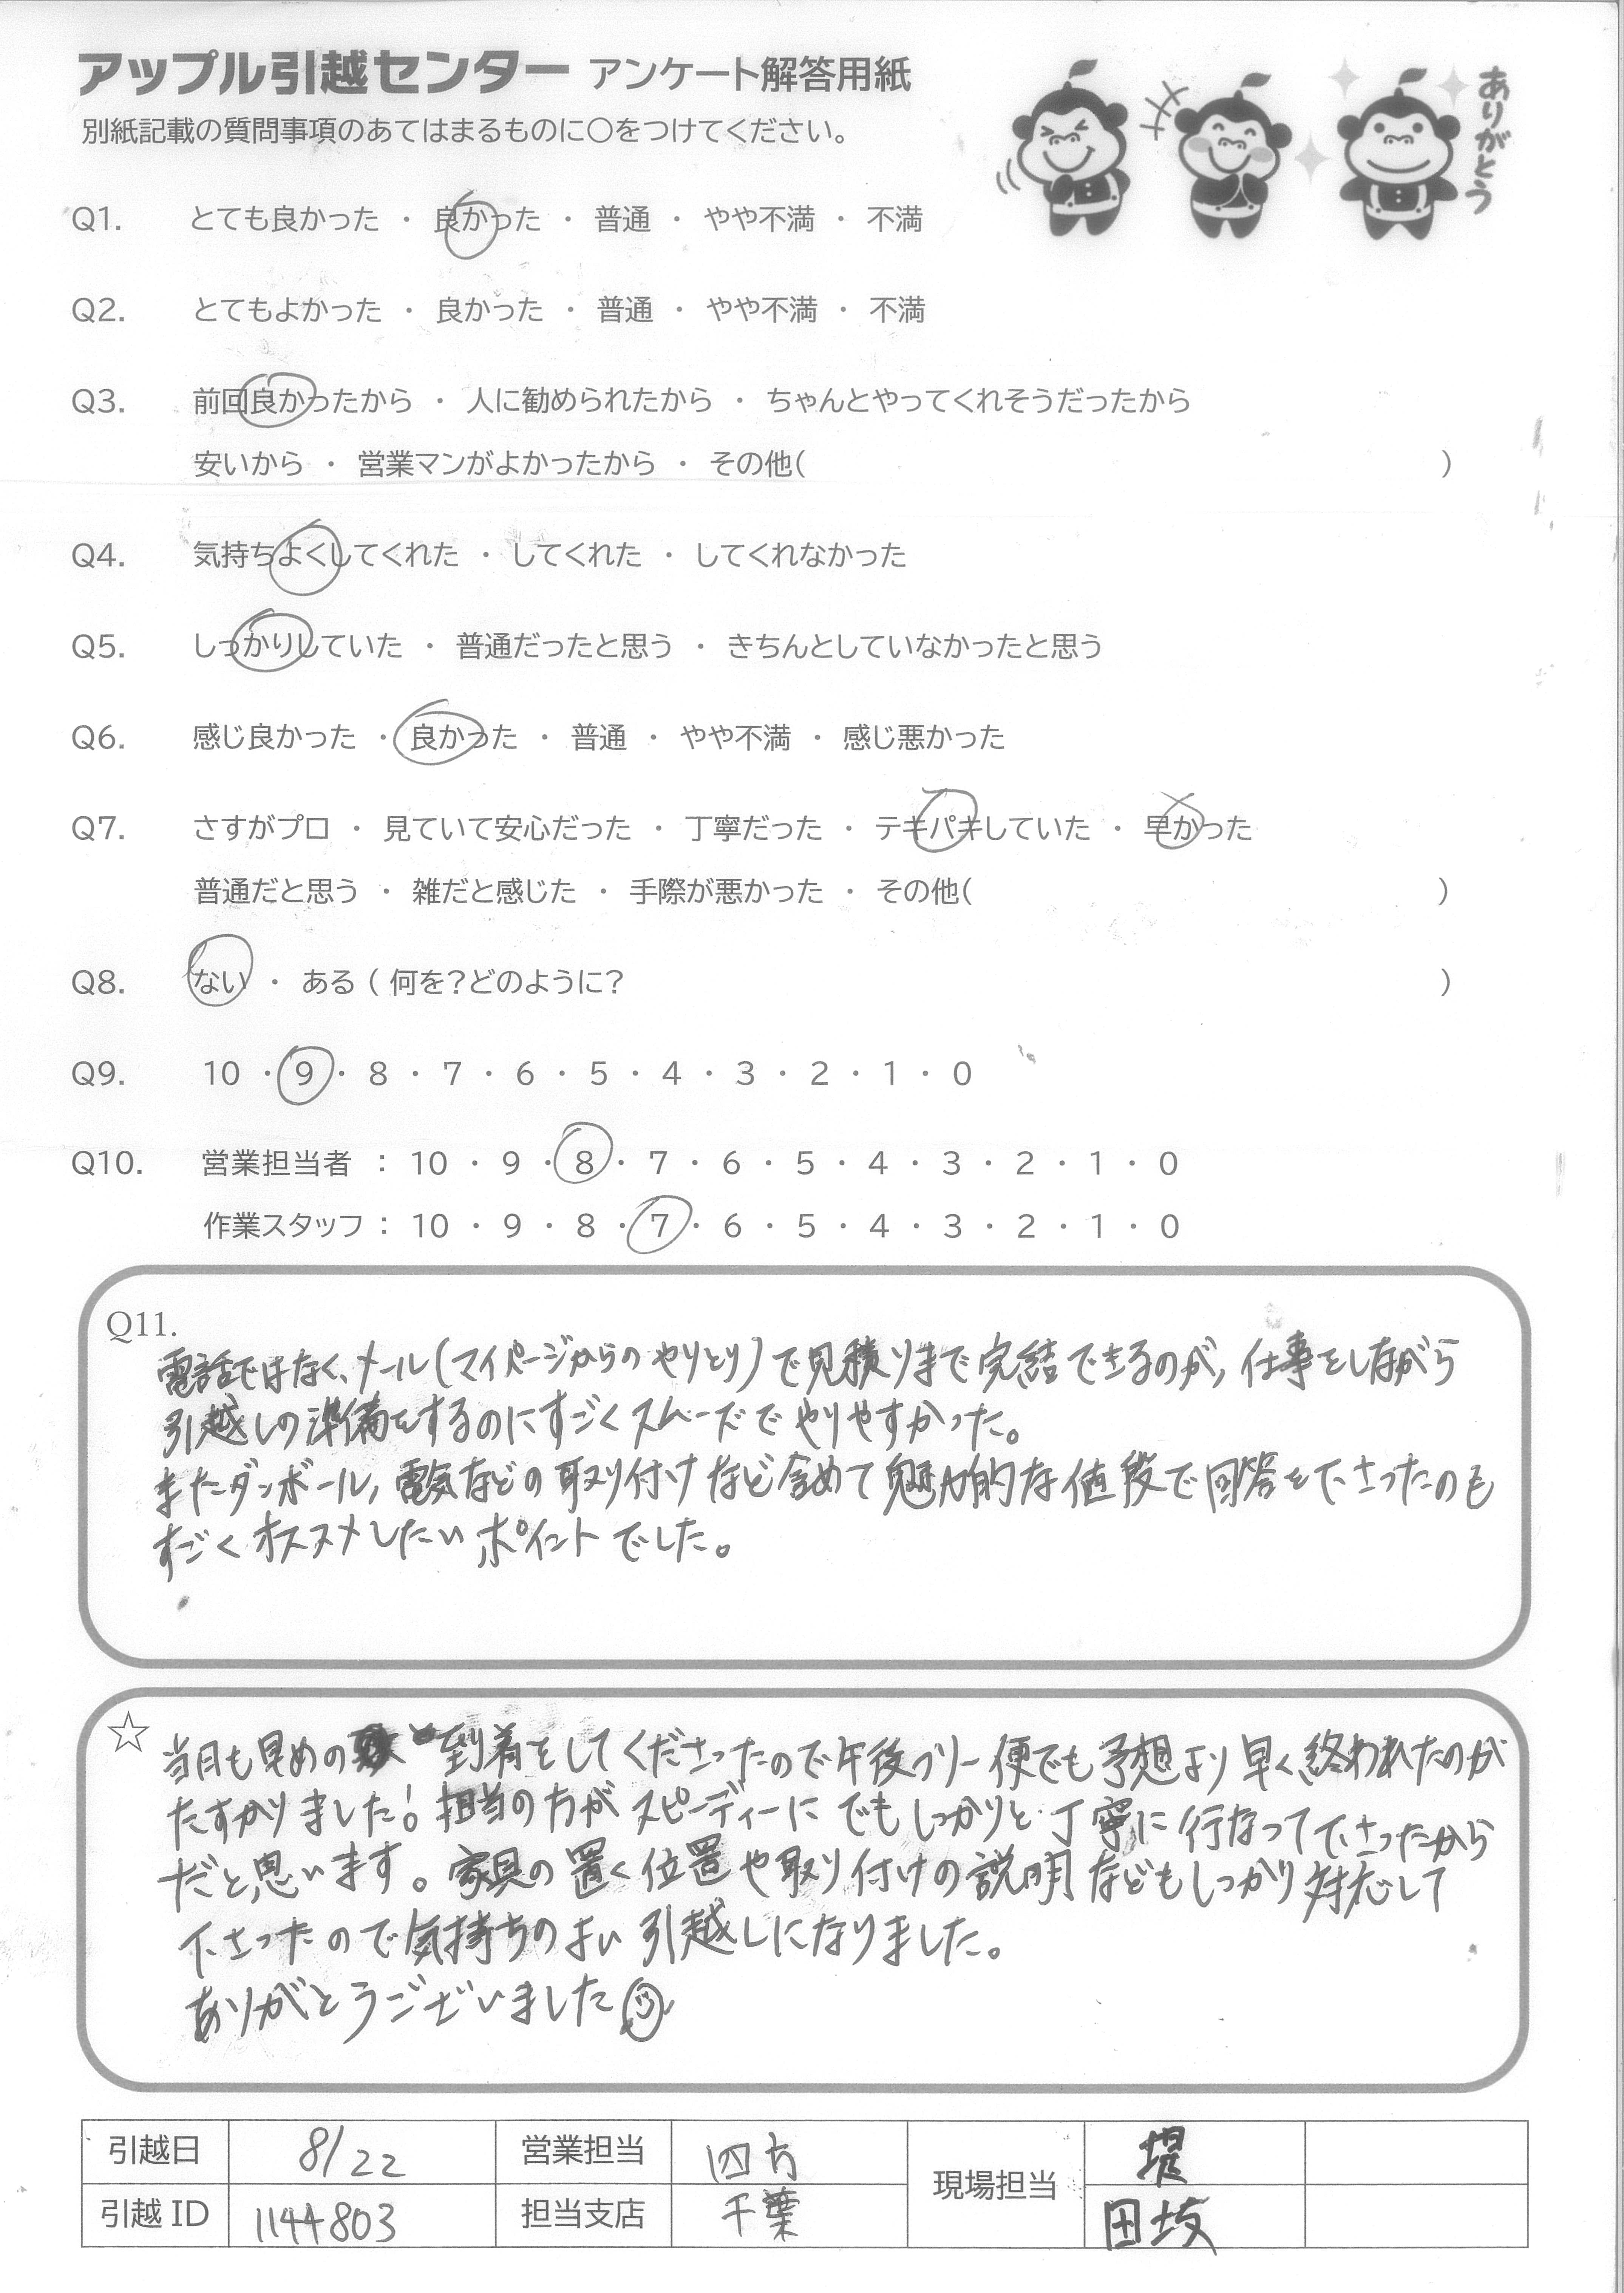 アップル引越センター アンケート解答用紙
別紙記載の質問事項のあてはまるものに〇をつけてください。
ありがとう
Q1. とても良かった ・ 良かった ・ 普通 ・ やや不満 ・ 不満
Q2. とてもよかった ・ 良かった ・ 普通 ・ やや不満 ・ 不満
Q3. 前回良かったから ・ 人に勧められたから ・ ちゃんとやってくれそうだったから
安いから ・ 営業マンがよかったから ・ その他( )
Q4. 気持ちよくしてくれた ・ してくれた ・ してくれなかった
Q5. しっかりしていた ・ 普通だったと思う ・ きちんとしていなかったと思う
Q6. 感じ良かった ・ 良かった ・ 普通 ・ やや不満 ・ 感じ悪かった
Q7. さすがプロ ・ 見ていて安心だった ・ 丁寧だった ・ テキパキしていた ・ 早かった
普通だと思う ・ 雑だと感じた ・ 手際が悪かった ・ その他( )
Q8. ない ・ ある ( 何を?どのように? )
Q9. 10 ・ 9 ・ 8 ・ 7 ・ 6 ・ 5 ・ 4 ・ 3 ・ 2 ・ 1 ・ 0
Q10. 営業担当者 : 10 ・ 9 ・ 8 ・ 7 ・ 6 ・ 5 ・ 4 ・ 3 ・ 2 ・ 1 ・ 0
作業スタッフ : 10 ・ 9 ・ 8 ・ 7 ・ 6 ・ 5 ・ 4 ・ 3 ・ 2 ・ 1 ・ 0
Q11.
電話ではなく、メール(マイページからのやりとり)で見積りまで完結できるのが、仕事をしながら
引越しの準備をするのにすごくスムーズでやりやすかった。
またダンボール、電気などの取り付けなど含めて魅力的な値段で回答を下さったのも
すごくオススメしたいポイントでした。
☆
当日も早めの到着をしてくださったので午後フリー便でも予想より早く終われたのが
たすかりました!。担当の方がスピーディーにでもしっかりと丁寧に行なって下さったから
だと思います。家具の置く位置や取り付けの説明などもしっかり対応して
下さったので気持ちのよい引越しになりました。
ありがとうございました
引越日 8/22 営業担当 四方 現場担当 堤
引越ID 1144803 担当支店 千葉 田坂